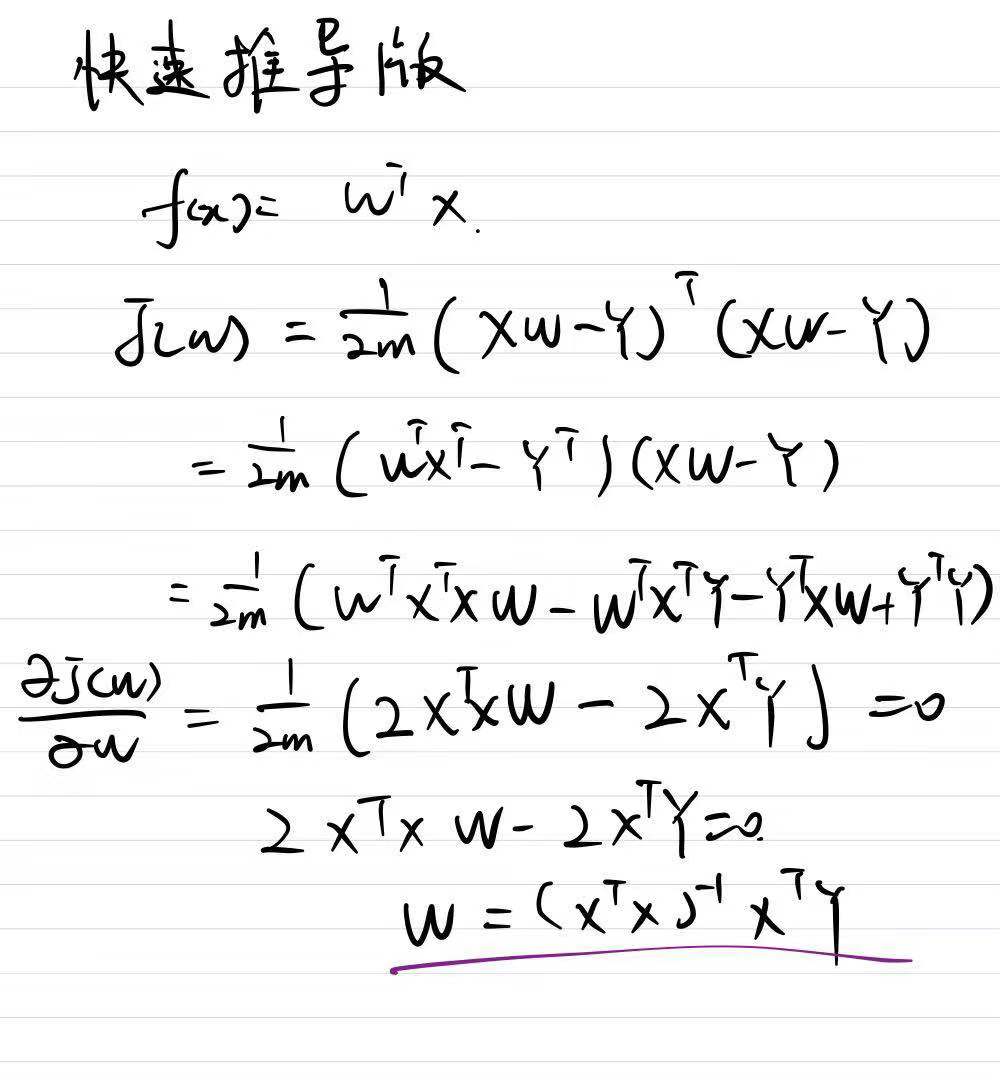 快速推导版
f(x) = wᵀx.
J(w) = 1/2m (Xw-Y)ᵀ(Xw-Y)
= 1/2m (wᵀXᵀ-Yᵀ)(Xw-Y)
= 1/2m (wᵀXᵀXw - wᵀXᵀY - YᵀXw + YᵀY)
∂J(w)/∂w = 1/2m (2XᵀXw - 2XᵀY) = 0
2XᵀXw - 2XᵀY = 0.
w = (XᵀX)⁻¹XᵀY